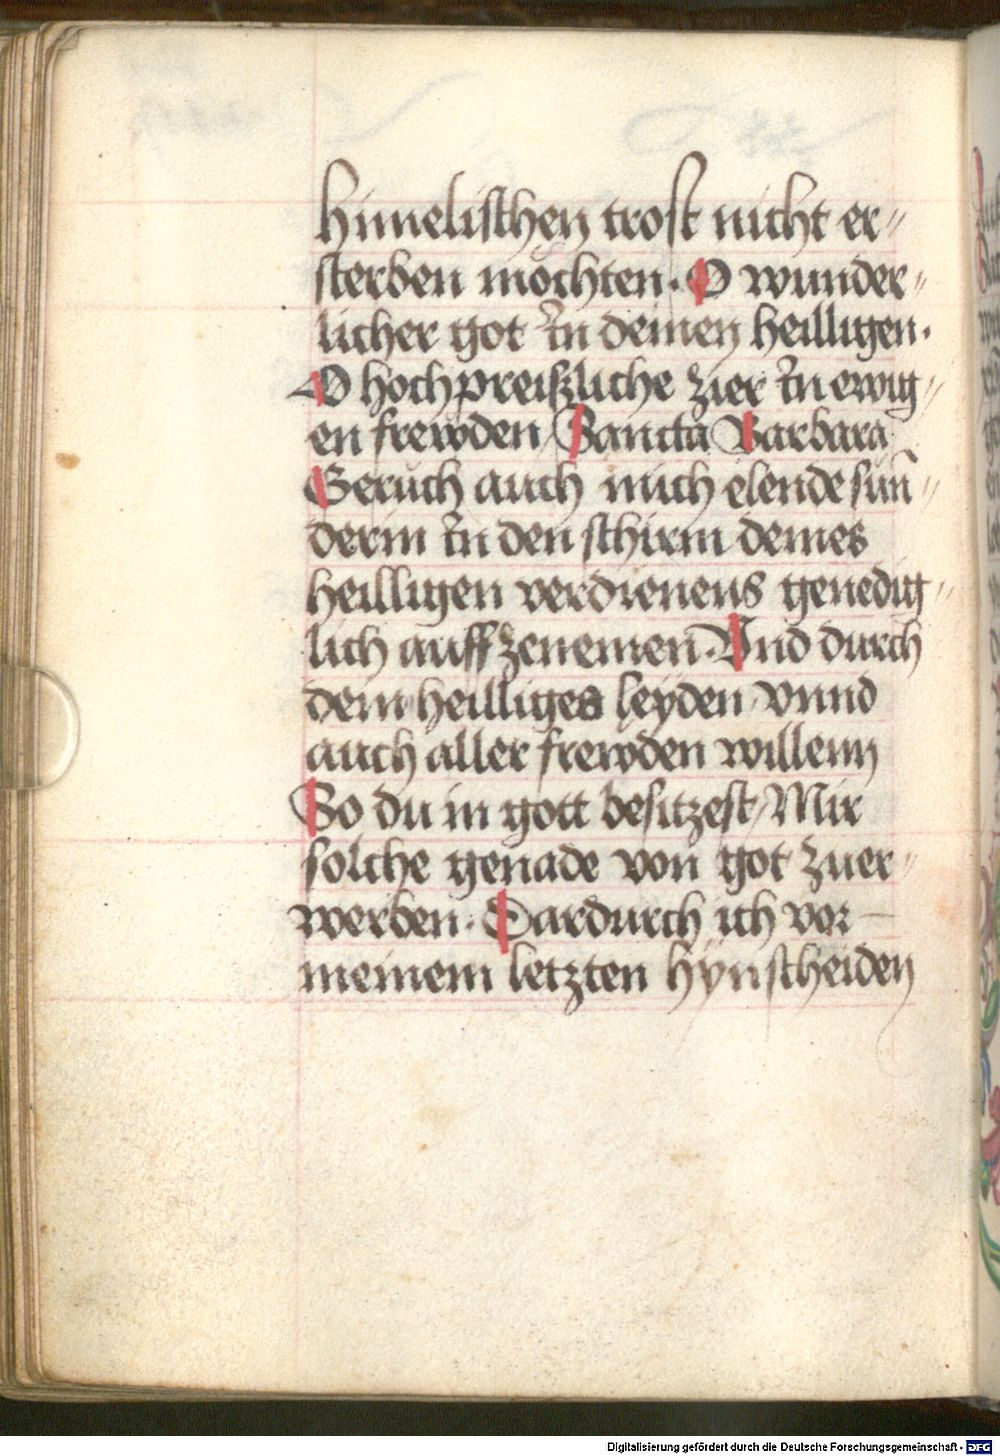 himelischen trost nicht er⸗
sterben möchten. O wunder⸗
licher got In deinen heilligen.
O hochpreißliche zier In ewig⸗
en frewden / Sancta Barbara
Geruch auch mich elende sun̄⸗
derin In den schirm deines
heilligen verdienens genedig⸗
lich auffzenemen. Vnd durch
dein heilliges leyden / vnnd
auch aller frewden willenn
So du in gott besitzest / Mir
solche genade von got zuer⸗
werben. Dardurch ich vor
meinem letzten hynscheiden
Digitalisierung gefördert durch die Deutsche Forschungsgemeinschaft - DFG